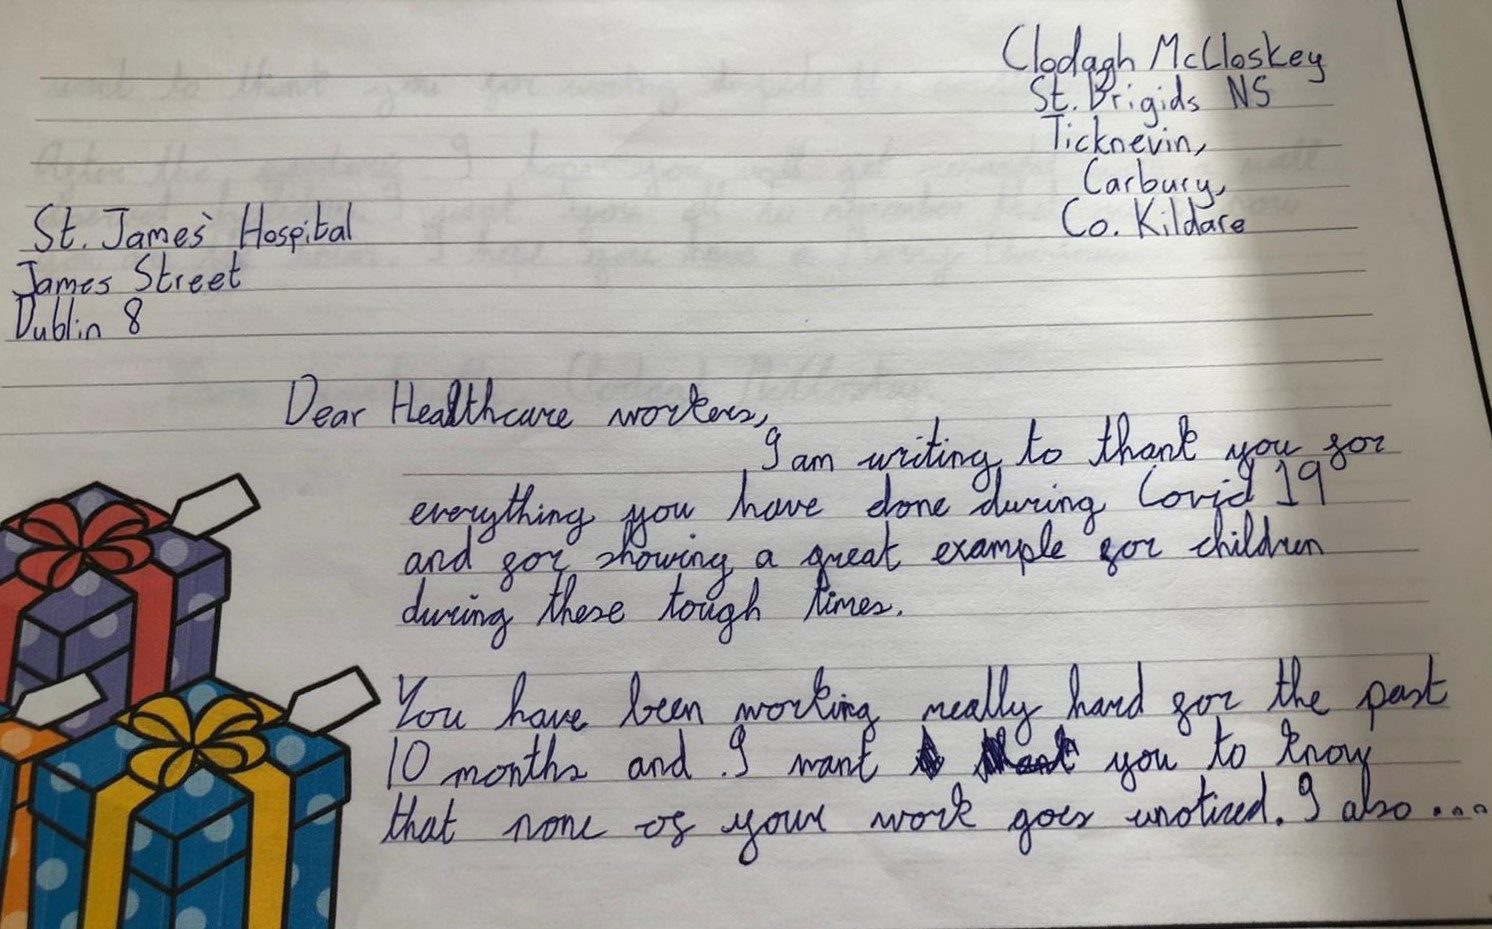 Clodagh McCloskey
St. Brigids NS
Ticknevin,
Carbury,
Co. Kildare
St. James' Hospital
James Street
Dublin 8
Dear Healthcare workers,
I am writing to thank you for
everything you have done during Covid 19
and for showing a great example for children
during these tough times.
You have been working really hard for the past
10 months and I want you to know
that none of your work goes unoticed. I also ...